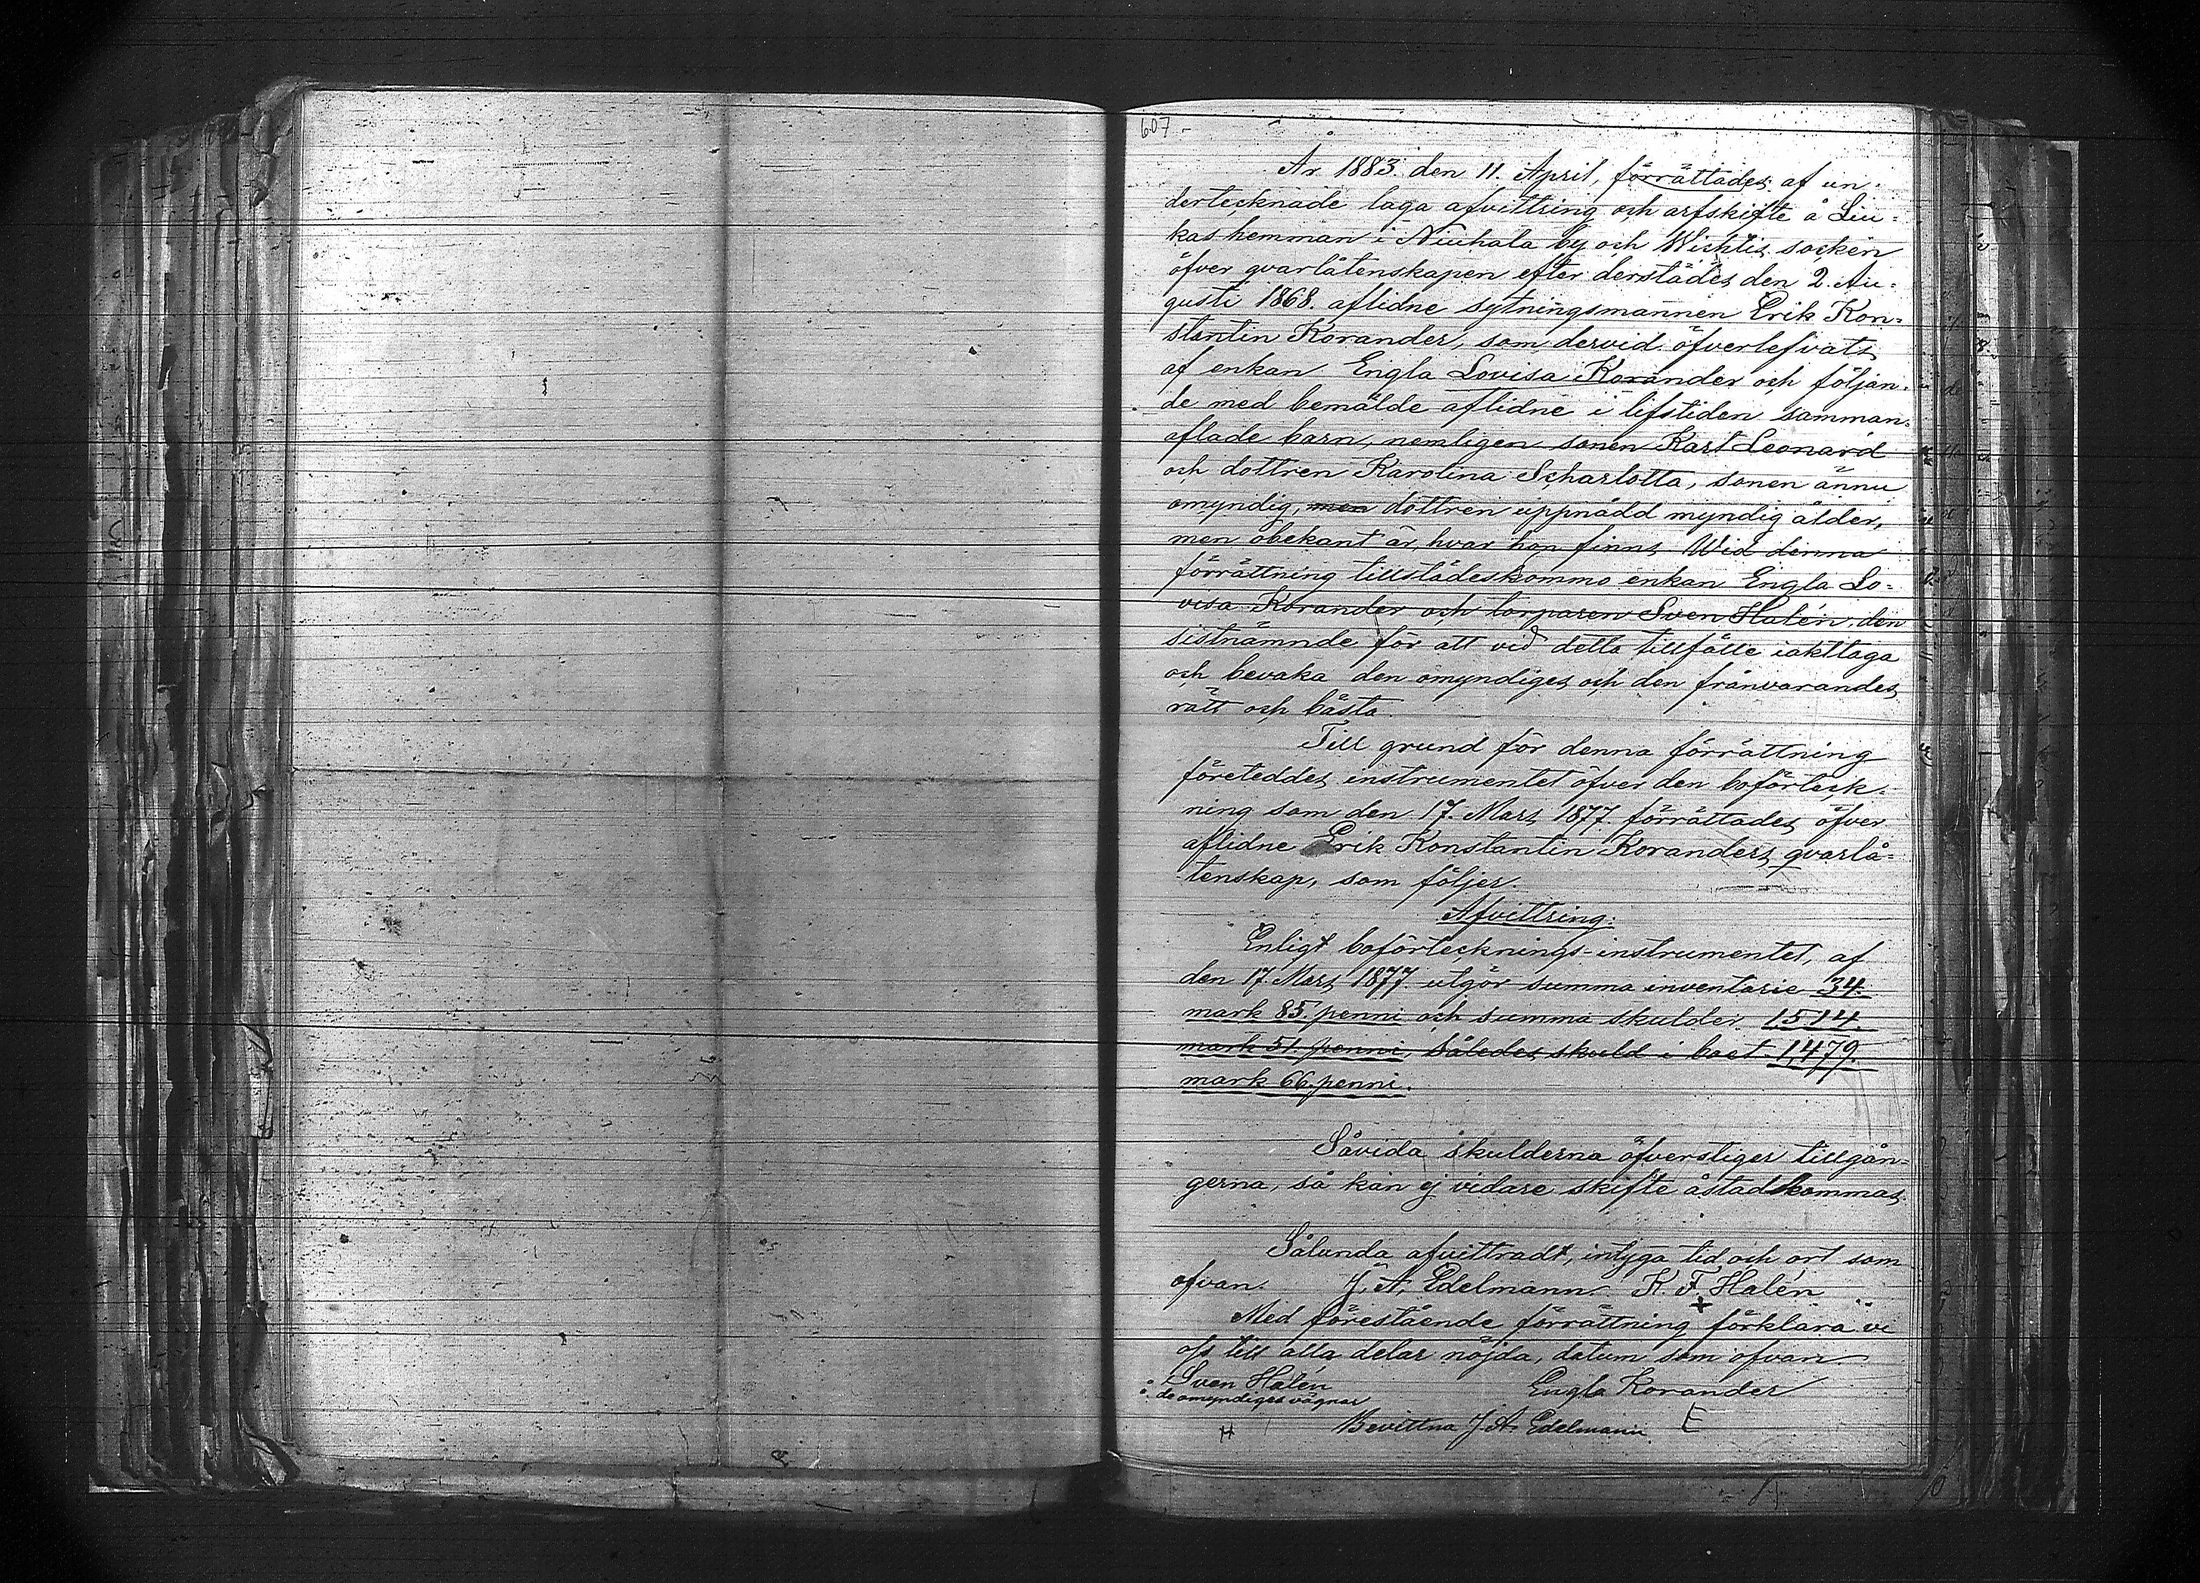 607
År 1883 den 11. April, förrättades af un-
dertecknade laga afvittring och arfskifte å Liu-
kas hemman i Niuhala by och Wichtis socken
öfver qvarlåtenskapen efter derstädes den 2. Au-
gusti 1868. aflidne sytningsmannen Erik Kon-
stantin Korander, som dervid öfverlefvats
af enkan Engla Lovisa Korander och följan-
de med bemälde aflidne i lifstiden samman-
aflade barn, nemligen sonen Karl Leonard
och dottren Karolina Scharlotta, sonen ännu
omyndig, men dottren uppnådd myndig ålder,
men obekant är, hvar hon finns. Wid denna
förrättning tillstädeskommo enkan Engla Lo-
visa Korander och torparen Sven Halén, den
sistnämnde för att vid detta tillfälle iakttaga
och bevaka den omyndiges och den frånvarandes
rätt och bästa.
Till grund för denna förrättning
företeddes instrumentet öfver den boförteck-
ning som den 17. Mars 1877 förrättades öfver
aflidne Erik Konstantin Koranders qvarlå-
tenskap, som följer.
Afvittring:
Enligt boförtecknings-instrumentet, af
den 17. Mars 1877 utgör summa inventarie 34.
mark 85. penni och summa skulder 1514.
mark 51. penni, således skuld i boet 1,479.
mark 66. penni.
Såvida skulderna öfverstiger tillgån-
gerna, så kan ej vidare skifte åstadkommas.
Sålunda afvittradt, intyga tid och ort som
ofvan. J. A. Edelmann K. F. Halén
+
Med förestående förrättning förklara vi
oss till alla delar nöjda, datum som ofvan.
Sven Halén Engla Korander
de omyndiges vägnar
Bevittna J. A. Edelmann